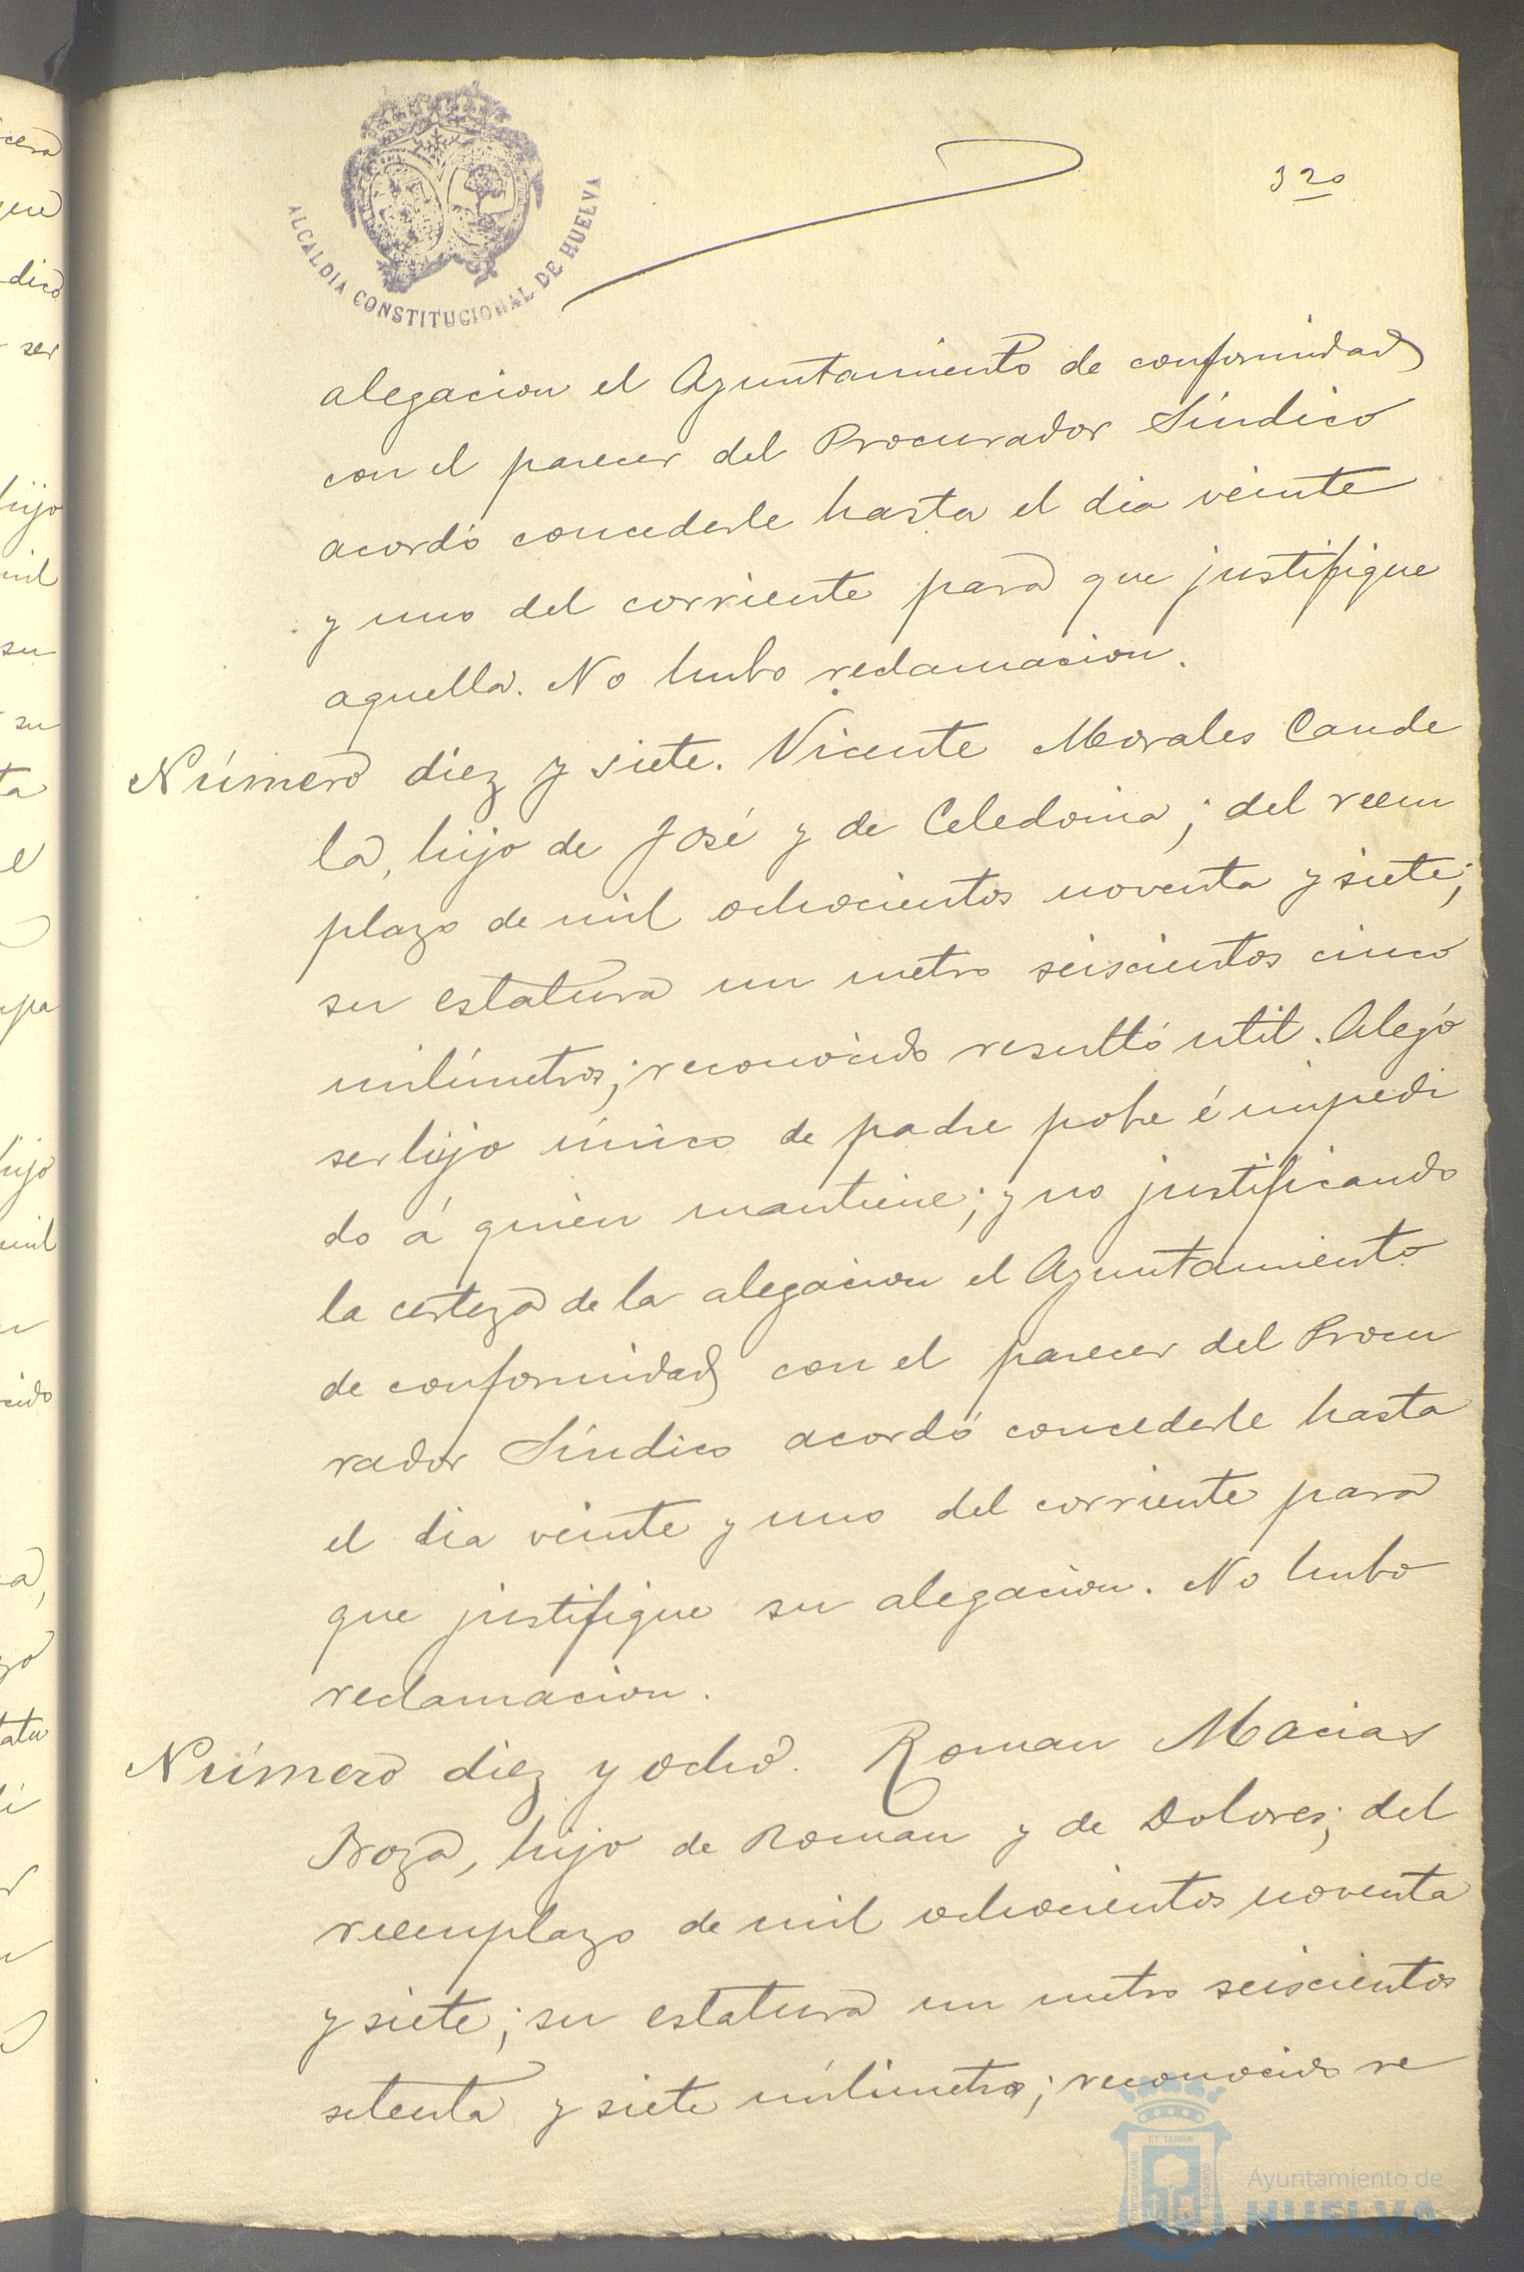 ALCALDIA CONSTITUCIONAL DE HUELVA
320
alegacion el Ayuntamiento de conformidad
con el parecer del Procurador Síndico
acordó concederle hasta el dia veinte
y uno del corriente para que justifique
aquella. No hubo reclamacion.
Número diez y siete. Vicente Morales Cande
la, hijo de José y de Celedonia; del reem
plazo de mil ochocientos noventa y siete;
su estatura un metro seiscientos cinco
milímetros; reconocido resultó util. Alegó
ser hijo único de padre pobre é impedi
do á quien mantiene; y no justificando
la certeza de la alegacion el Ayuntamiento
de conformidad con el parecer del Procu
rador Síndico acordó concederle hasta
el dia veinte y uno del corriente para
que justifique su alegacion. No hubo
reclamacion.
Número diez y ocho. Roman Macias
hijo de Roman y de Dolores; del
reemplazo de mil ochocientos noventa
y siete; su estatura un metro seiscientos
setenta y siete milímetros; reconocido re
Ayuntamiento de
HUELVA